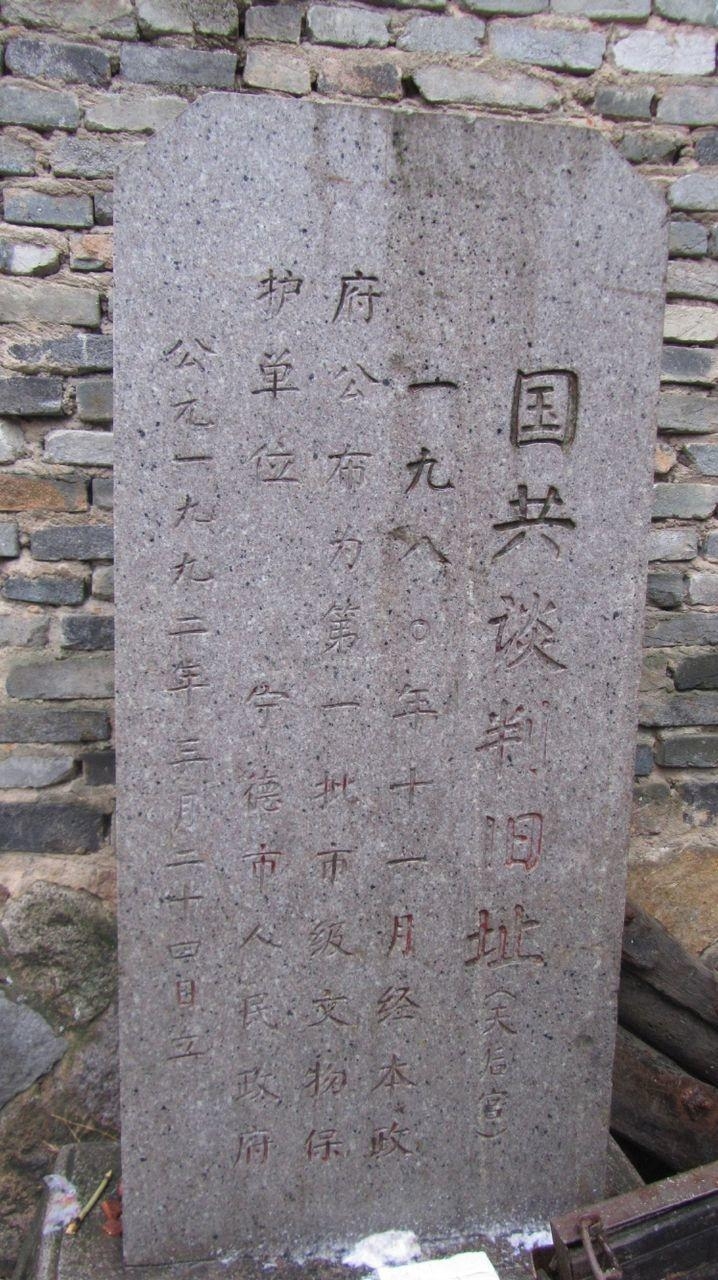 国共谈判旧址(天后宫)
一九八〇年十一月经本政
府公布为第一批市级文物保
护单位 宁德市人民政府
公元一九九二年三月二十四日立